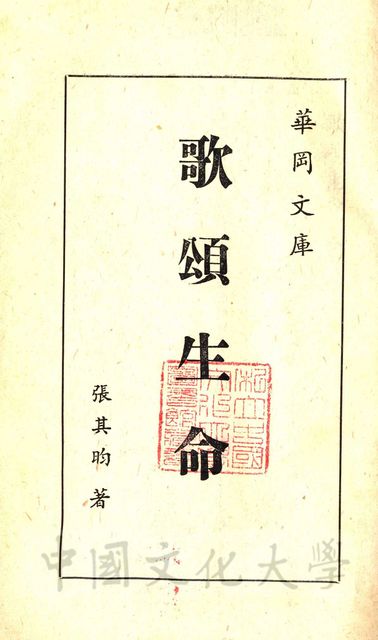 華岡文庫
歌頌生命
張其昀著
中國文化大學